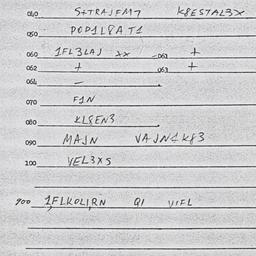 040 S+TRAJFM7 K8ESTAL3X
050 POP1L8A T1
060 1FL3LAJ xx 061 +
062 + 063 +
064 —
070 F1N
080 KL8EN3
090 MAJN VAJN1K83
100 VEL3XS
900 1FLKOL1RN Q1 V1FL